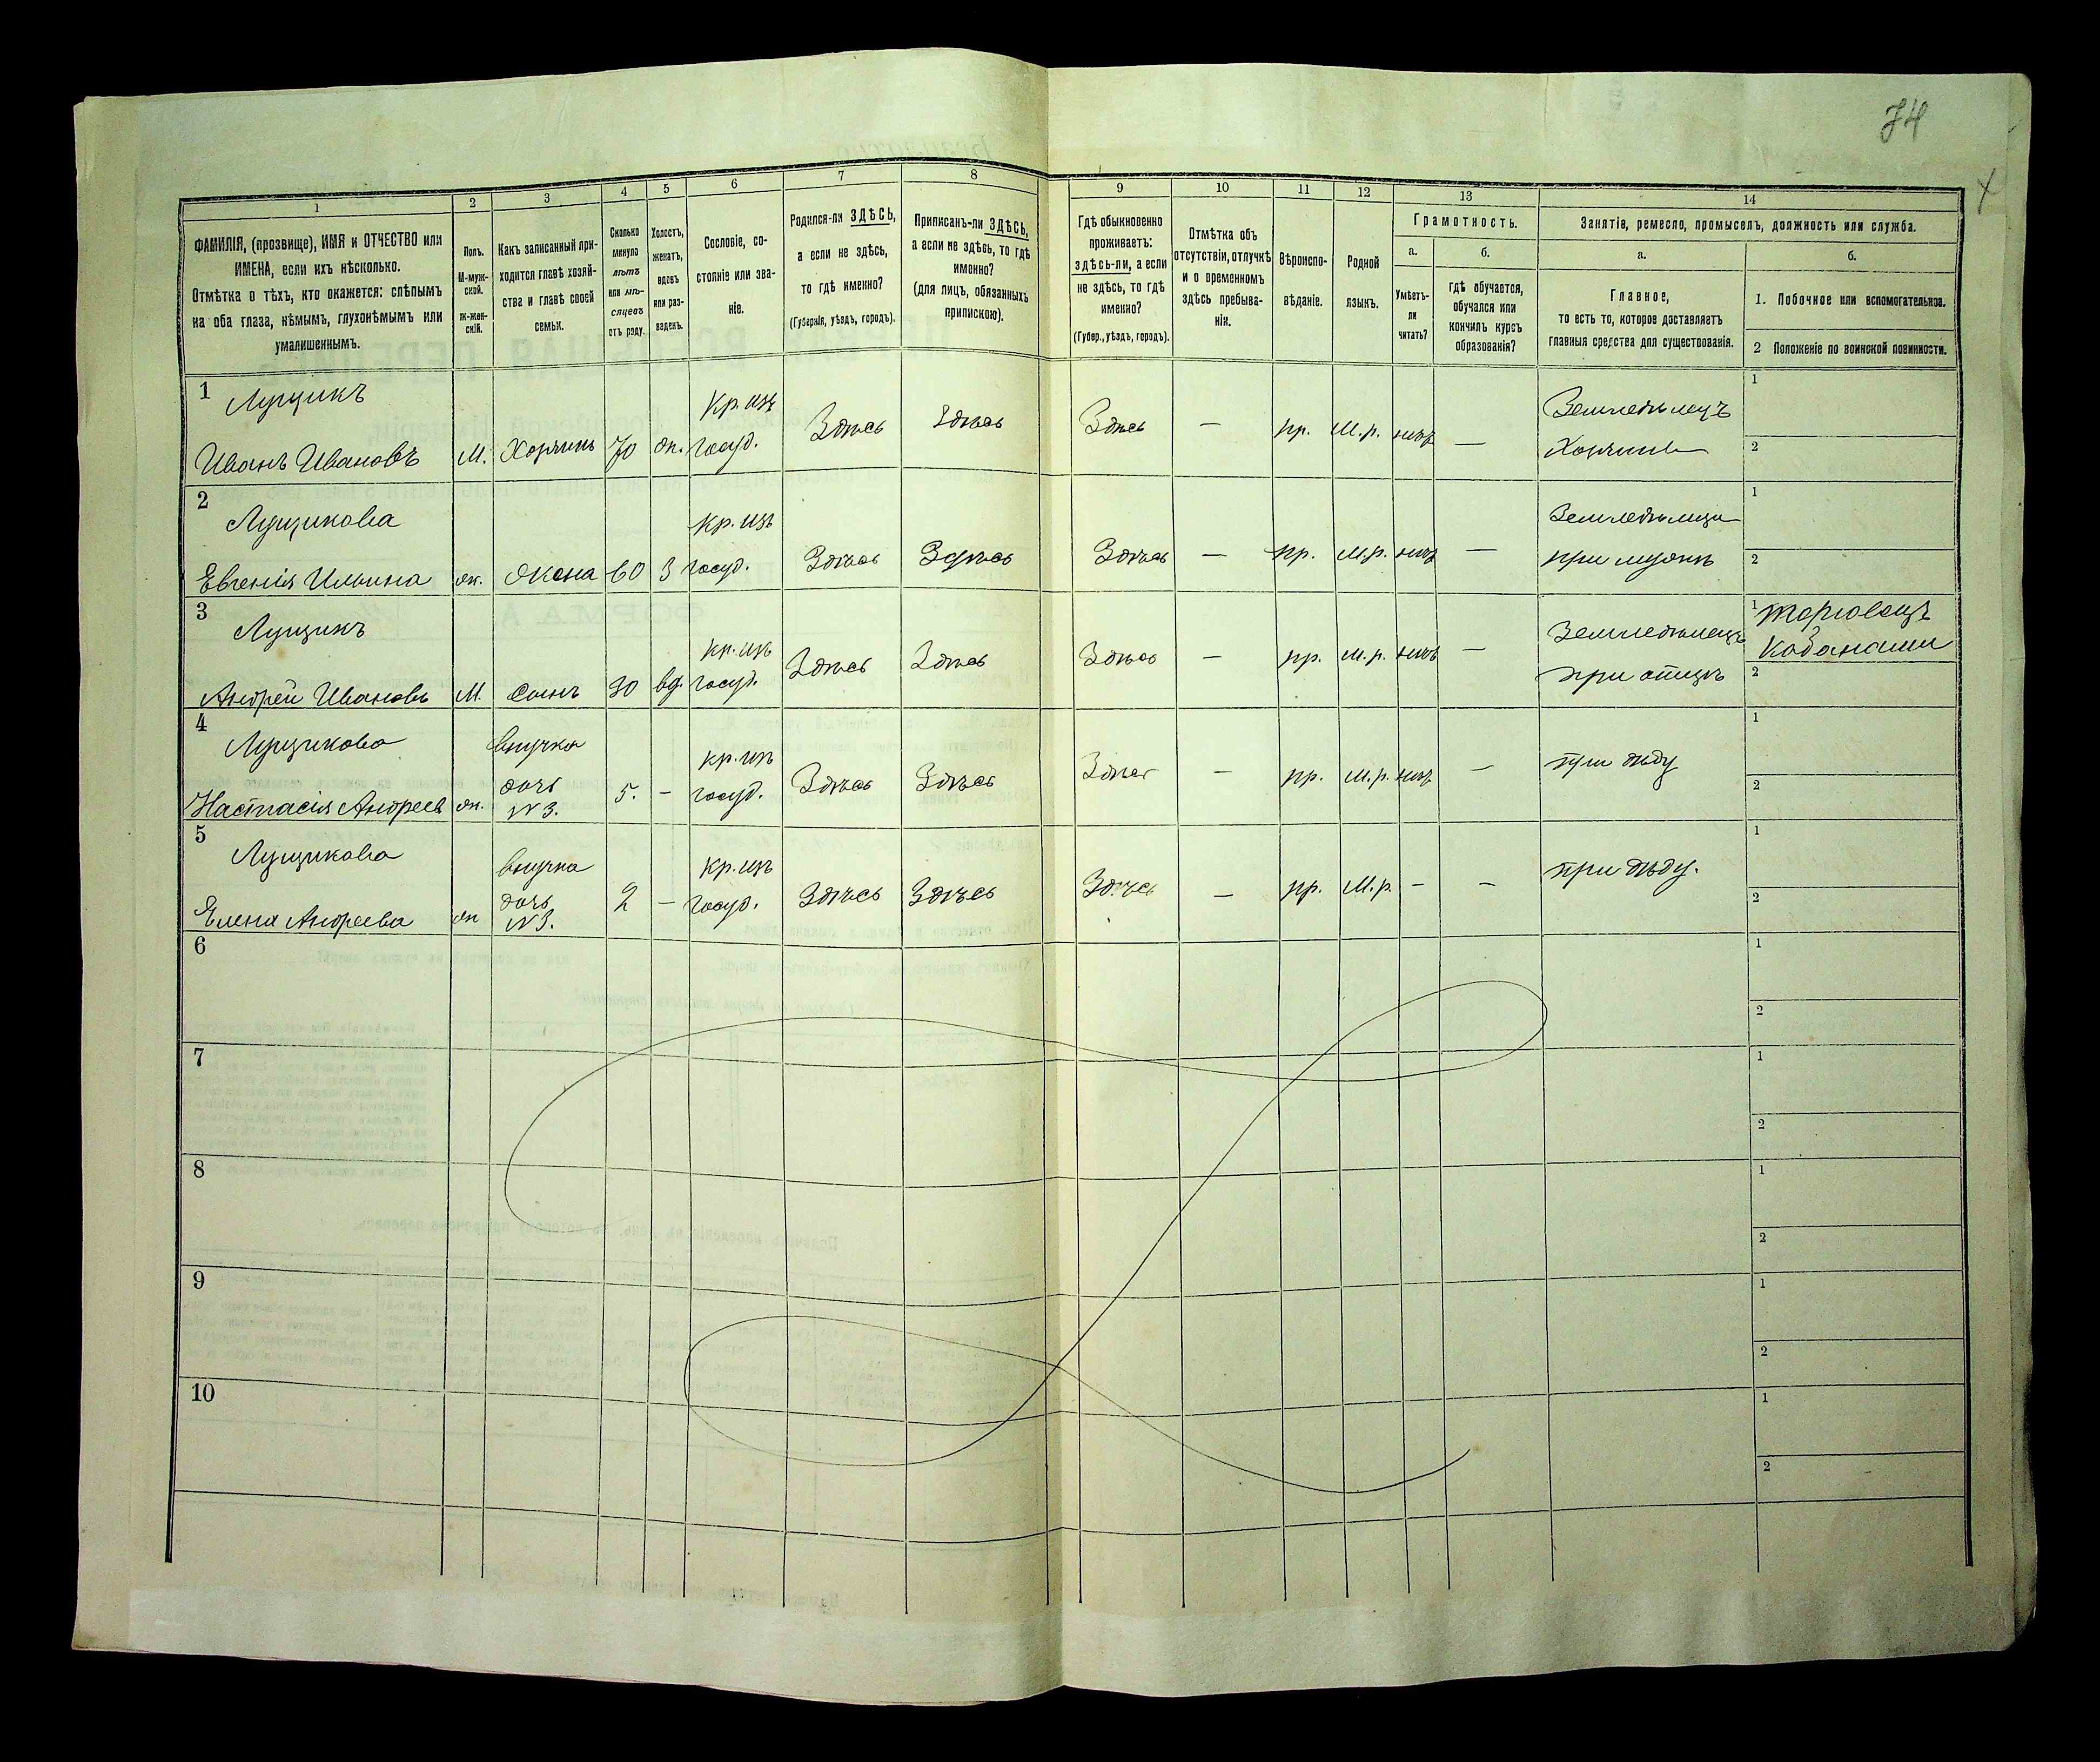 74
1 2 3 4 5 6 7 8 9 10 11 12 13 14
ФАМИЛІЯ, (прозвище), ИМЯ и ОТЧЕСТВО или
ИМЕНА, если ихъ нѣсколько.
Отмѣтка о тѣхъ, кто окажется: слѣпымъ
на оба глаза, нѣмымъ, глухонѣмымъ или
умалишеннымъ.
Полъ.
М-муж-
ской.
ж-жен-
скій.
Какъ записанный при-
ходится главѣ хозяй-
ства и главѣ своей
семьи.
Сколько
минуло
лѣтъ
или мѣ-
сяцевъ
отъ роду.
Холостъ,
женатъ,
вдовъ
или раз-
веденъ.
Сословіе, со-
стояніе или зва-
ніе.
Родился-ли ЗДѢСЬ,
а если не здѣсь,
то гдѣ именно?
(Губернія, уѣздъ, городъ).
Приписанъ-ли ЗДѢСЬ,
а если не здѣсь, то гдѣ
именно?
(для лицъ, обязанныхъ
припискою).
Гдѣ обыкновенно
проживаетъ:
здѣсь-ли, а если
не здѣсь, то гдѣ
именно?
(Губер., уѣздъ, городъ).
Отмѣтка объ
отсутствіи, отлучкѣ
и о временномъ
здѣсь пребыва-
ніи.
Вѣроиспо-
вѣданіе.
Родной
языкъ.
Грамотность.
а.
Умѣетъ-
ли
читать?
б.
гдѣ обучается,
обучался или
кончилъ курсъ
образованія?
Занятія, ремесло, промыселъ, должность или служба.
а.
Главное,
то есть то, которое доставляетъ
главныя средства для существованія.
б.
1. Побочное или вспомогательное.
2 Положеніе по воинской повинности.
1 Лущикъ Кр. изъ Земледѣлецъ 1
Иванъ Ивановъ М. Хозяинъ 70 ж. госуд. Здѣсь Здѣсь Здѣсь — пр. М.р. нѣтъ — Хозяинъ 2
2 Лущикова кр. изъ Земледѣлица 1
Евгенія Ильина ж. Жена 60 З госуд. Здѣсь Здѣсь Здѣсь — пр. М.р. нѣтъ — при мужѣ 2
3 Лущикъ кр. изъ Земледѣлецъ 1 торговецъ
кабанами
Андрей Ивановъ М. Сынъ 30 вд. госуд. Здѣсь Здѣсь Здѣсь — пр. М.р. нѣтъ — при отцѣ 2
4 Лущикова внучка кр. изъ 1
дочь
Настасія Андреев ж. №3. 5. — госуд. Здѣсь Здѣсь Здѣсь — пр. М.р. нѣтъ — при дѣду 2
5 Лущикова внучка кр. изъ 1
дочь
Елена Андреева ж №3. 2 — госуд. Здѣсь Здѣсь Здѣсь — пр. М.р. — — при дѣду. 2
6 1
2
7 1
2
8 1
2
9 1
2
10 1
2